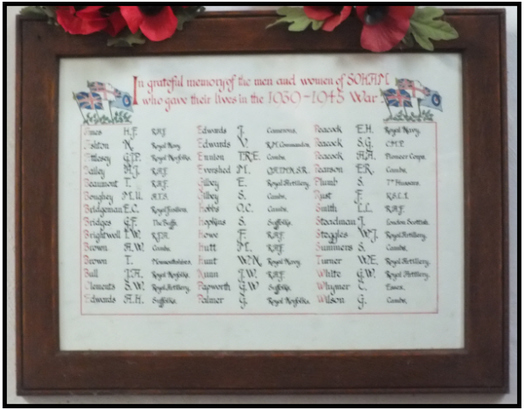 In grateful memory of the men and women of SOHAM
who gave their lives in the 1939-1945 War
Ames H.F. R.A.F.
Ashton N. Royal Navy.
Attesey G.J.P. Royal Norfolks.
Bailey A.J. R.A.F.
Beaumont T. R.A.F.
Boughey M.U. A.T.S.
Bridgeman E.C. Royal Fusiliers.
Bridges G.F. The Buffs
Brightwell L.W. R.A.F.
Brown A.W. Cambs.
Brown T. Monmouthshire.
Bull J.A. Royal Norfolks.
Clements S.W. Royal Artillery.
Edwards A.H. Suffolks.
Edwards J. Camerons.
Edwards V. R.M. Commandos.
Ennion T.R.E. Cambs.
Evershed M. Q.A.I.M.N.S.R.
Gilbey E. Royal Artillery.
Gilbey S. Cambs.
Hobbs O.C. Cambs.
Hopkins S. Suffolks.
Howe F. R.A.F.
Hutt M. R.A.F.
Hunt W.N. Royal Navy.
Nunn J.W. R.A.F.
Papworth G.W Suffolks.
Palmer G. Royal Norfolks.
Peacock E.H. Royal Navy.
Peacock S.G. C.M.P.
Peacock A.A. Pioneer Corps.
Pearson E.R. Cambs.
Plumb S. 7th Hussars.
Rust F. K.S.L.I.
Smith L.L. R.A.F.
Steadman I. London Scottish.
Staggles W.J. Royal Artillery.
Summers S. Cambs.
Turner W.E. Royal Artillery.
White G.W. Royal Artillery.
Whymer C. Essex.
Wilson G. Cambs.